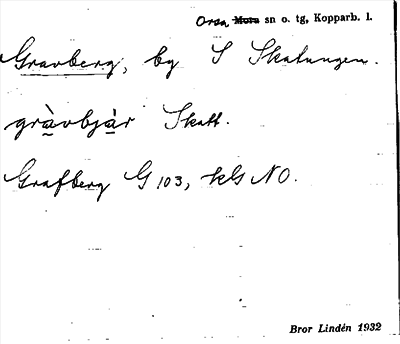 Orsa Mora sn o. tg, Kopparb. l.
Gravberg, by S Skatungen.
gràvbjàr Skatt.
Grafberg G 103, kls NO.
Bror Lindén 1932